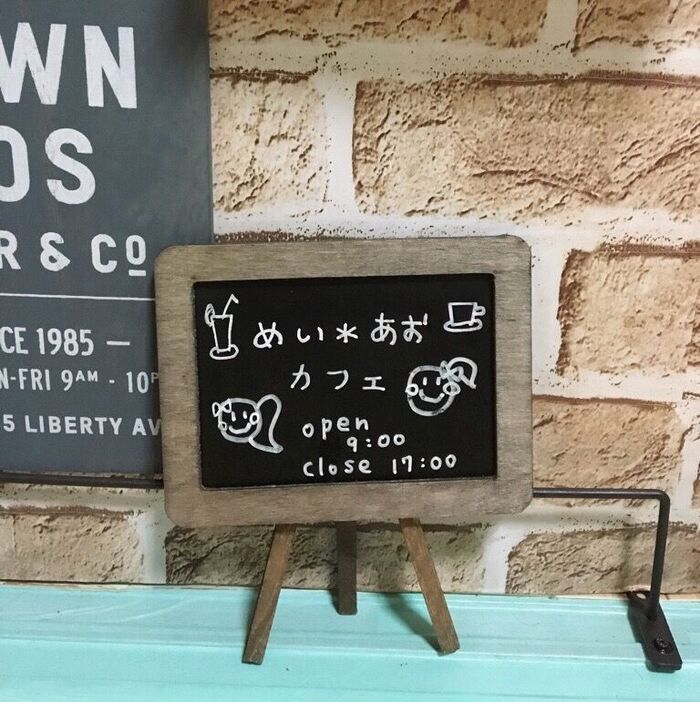 WN
OS
R & CO
CE 1985 —
N-FRI 9AM - 10P
5 LIBERTY AV
めい*あお
カフェ
open
9:00
close 17:00